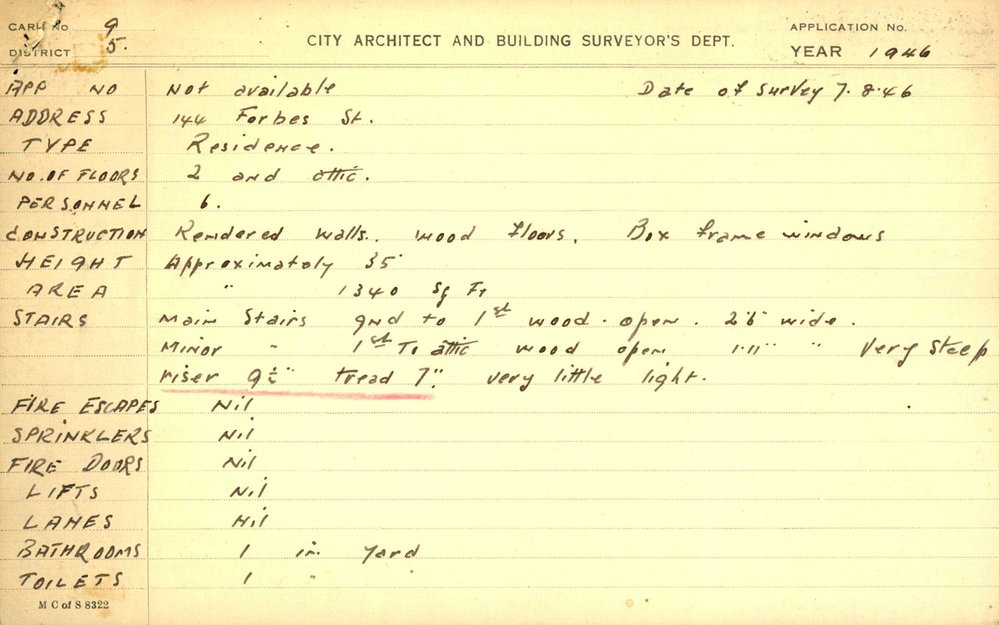 CARD No. 9
DISTRICT 5.
CITY ARCHITECT AND BUILDING SURVEYOR'S DEPT.
APPLICATION No.
YEAR 1946
APP NO Not available Date of Survey 7.8.46
ADDRESS 144 Forbes St.
TYPE Residence.
NO. OF FLOORS 2 and attic.
PERSONNEL 6.
CONSTRUCTION Rendered walls. wood floors. Box frame windows
HEIGHT Approximately 35'
AREA " 1340 Sq Ft
STAIRS Main Stairs gnd to 1st wood. open. 2'6" wide.
Minor " 1st To attic wood open 1'11" " Very Steep
riser 9½" tread 7". very little light.
FIRE ESCAPES Nil
SPRINKLERS Nil
FIRE DOORS Nil
LIFTS Nil
LANES Nil
BATHROOMS 1 in yard
TOILETS 1 "
M C of S 8322